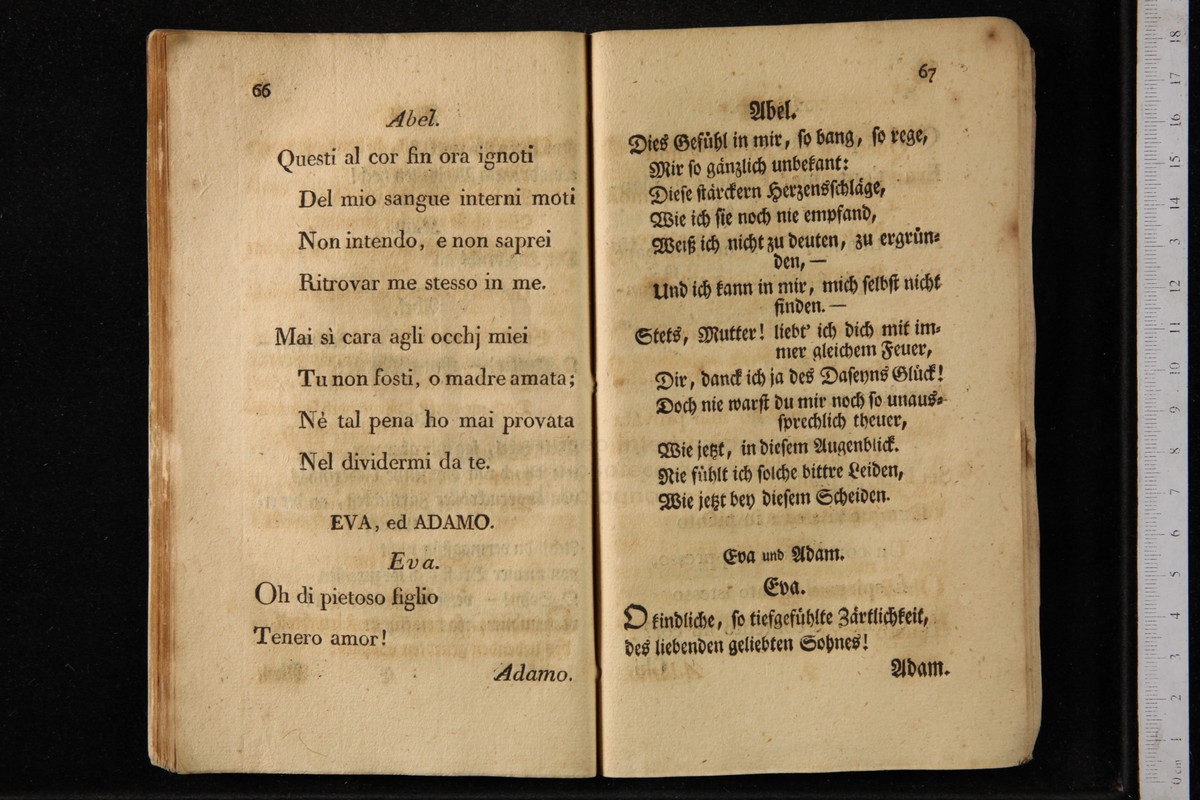 66
Abel.
Questi al cor fin ora ignoti
Del mio sangue interni moti
Non intendo, e non saprei
Ritrovar me stesso in me.
Mai sì cara agli occhj miei
Tu non fosti, o madre amata;
Nè tal pena ho mai provata
Nel dividermi da te.
EVA, ed ADAMO.
Eva.
Oh di pietoso figlio
Tenero amor!
Adamo.
67
Abel.
Dies Gefühl in mir, so bang, so rege,
Mir so gänzlich unbekant:
Diese stärckern Herzensschläge,
Wie ich sie noch nie empfand,
Weiß ich nicht zu deuten, zu ergrün=
den, —
Und ich kann in mir, mich selbst nicht
finden. —
Stets, Mutter! liebt' ich dich mit im=
mer gleichem Feuer,
Dir, danck ich ja des Daseyns Glück!
Doch nie warst du mir noch so unaus=
sprechlich theuer,
Wie jetzt, in diesem Augenblick.
Nie fühlt ich solche bittre Leiden,
Wie jetzt bey diesem Scheiden.
Eva und Adam.
Eva.
O kindliche, so tiefgefühlte Zärtlichkeit,
des liebenden geliebten Sohnes!
Adam.
0 cm 1 2 3 4 5 6 7 8 9 10 11 12 13 14 15 16 17 18